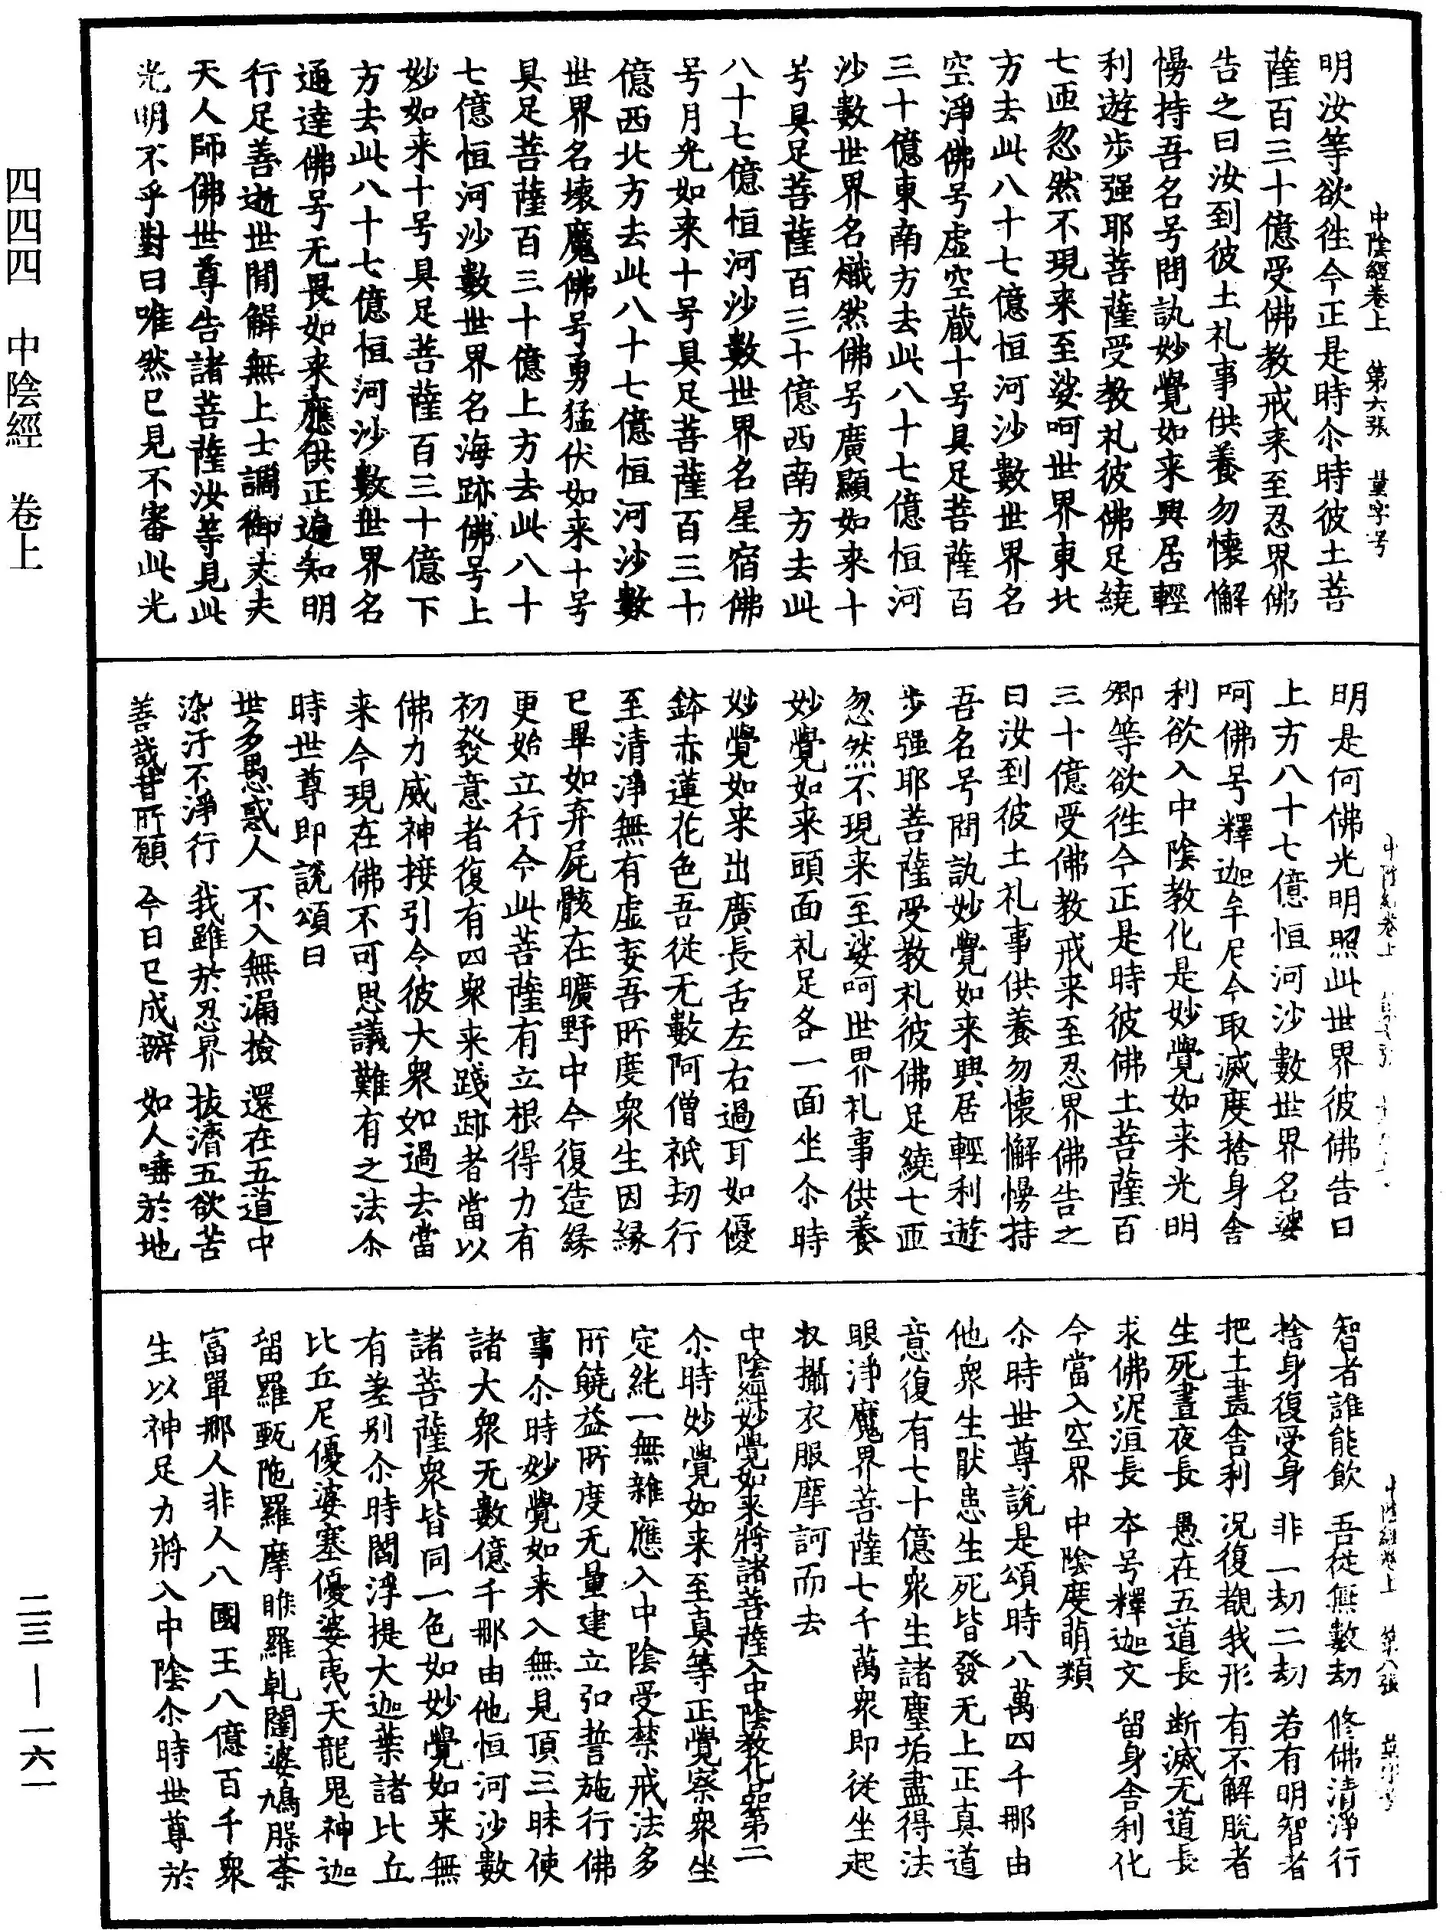 明汝等欲徃今正是時尒時彼土菩
薩百三十億受佛教戒来至忍界佛
告之曰汝到彼土礼事供養勿懷懈
慢持吾名号問訊妙覺如来興居輕
利遊步强耶菩薩受教礼彼佛足繞
七迊忽然不現来至娑呵世界東北
方去此八十七億恒河沙數世界名
空淨佛号虚空蔵十号具足菩薩百
三十億東南方去此八十七億恒河
沙數世界名熾然佛号廣顯如来十
号具足菩薩百三十億西南方去此
八十七億恒河沙數世界名星宿佛
号月光如来十号具足菩薩百三十
億西北方去此八十七億恒河沙數
世界名壊魔佛号勇猛伏如来十号
具足菩薩百三十億上方去此八十
七億恒河沙數世界名海跡佛号上
妙如来十号具足菩薩百三十億下
方去此八十七億恒河沙數世界名
通達佛号无畏如来應供正遍知明
行足善逝世間解無上士調御丈夫
天人師佛世尊告諸菩薩汝等見此
光明不乎對曰唯然已見不審此光
中陰經卷上 第六張 墓字号
明是何佛光明照此世界彼佛告曰
上方八十七億恒河沙數世界名娑
呵佛号釋迦牟尼今取滅度捨身舍
利欲入中陰教化是妙覺如来光明
卿等欲徃今正是時彼佛土菩薩百
三十億受佛教戒来至忍界佛告之
曰汝到彼土礼事供養勿懷懈慢持
吾名号問訊妙覺如来興居輕利遊
步强耶菩薩受教礼彼佛足繞七迊
忽然不現来至娑呵世界礼事供養
妙覺如来頭面礼足各一面坐尒時
妙覺如来出廣長舌左右過耳如優
鉢赤蓮花色吾從无數阿僧祇劫行
至清淨無有虚妄吾所度衆生因縁
已畢如弃屍骸在曠野中今復造縁
更始立行今此菩薩有立根得力有
初發意者復有四衆来踐跡者當以
佛力威神接引令彼大衆如過去當
来今現在佛不可思議難有之法尒
時世尊即說頌曰
世多愚惑人 不入無漏撿 還在五道中
染汙不淨行 我雖於忍界 拔濟五欲苦
善哉昔所願 今日已成辦 如人唾於地
中陰經卷上
智者誰能飲 吾從無數劫 修佛清淨行
捨身復受身 非一劫二劫 若有明智者
把土盡舍利 况復覩我形 有不解脫者
生死晝夜長 愚在五道長 断滅无道長
求佛泥洹長 夲号釋迦文 留身舎利化
今當入空界 中陰度萌類
尒時世尊說是頌時八萬四千那由
他衆生猒患生死皆發无上正真道
意復有七十億衆生諸塵垢盡得法
眼淨魔界菩薩七千萬衆即從坐起
收攝衣服摩訶而去
中陰經妙覺如来將諸菩薩入中陰教化品第二
尒時妙覺如来至真等正覺察衆坐
定純一無雜應入中陰受禁戒法多
所饒益所度无量建立弘誓施行佛
事尒時妙覺如来入無見頂三昧使
諸大衆无數億千那由他恒河沙數
諸菩薩衆皆同一色如妙覺如来無
有差别尒時閻浮提大迦葉諸比丘
比丘尼優婆塞優婆夷天龍鬼神迦
留羅甄陁羅摩睺羅乹闥婆鳩膝荼
富單那人非人八國王八億百千衆
生以神足力將入中陰尒時世尊於
中陰經卷上 第八張
四四四 中陰經 卷上
二三—一六一